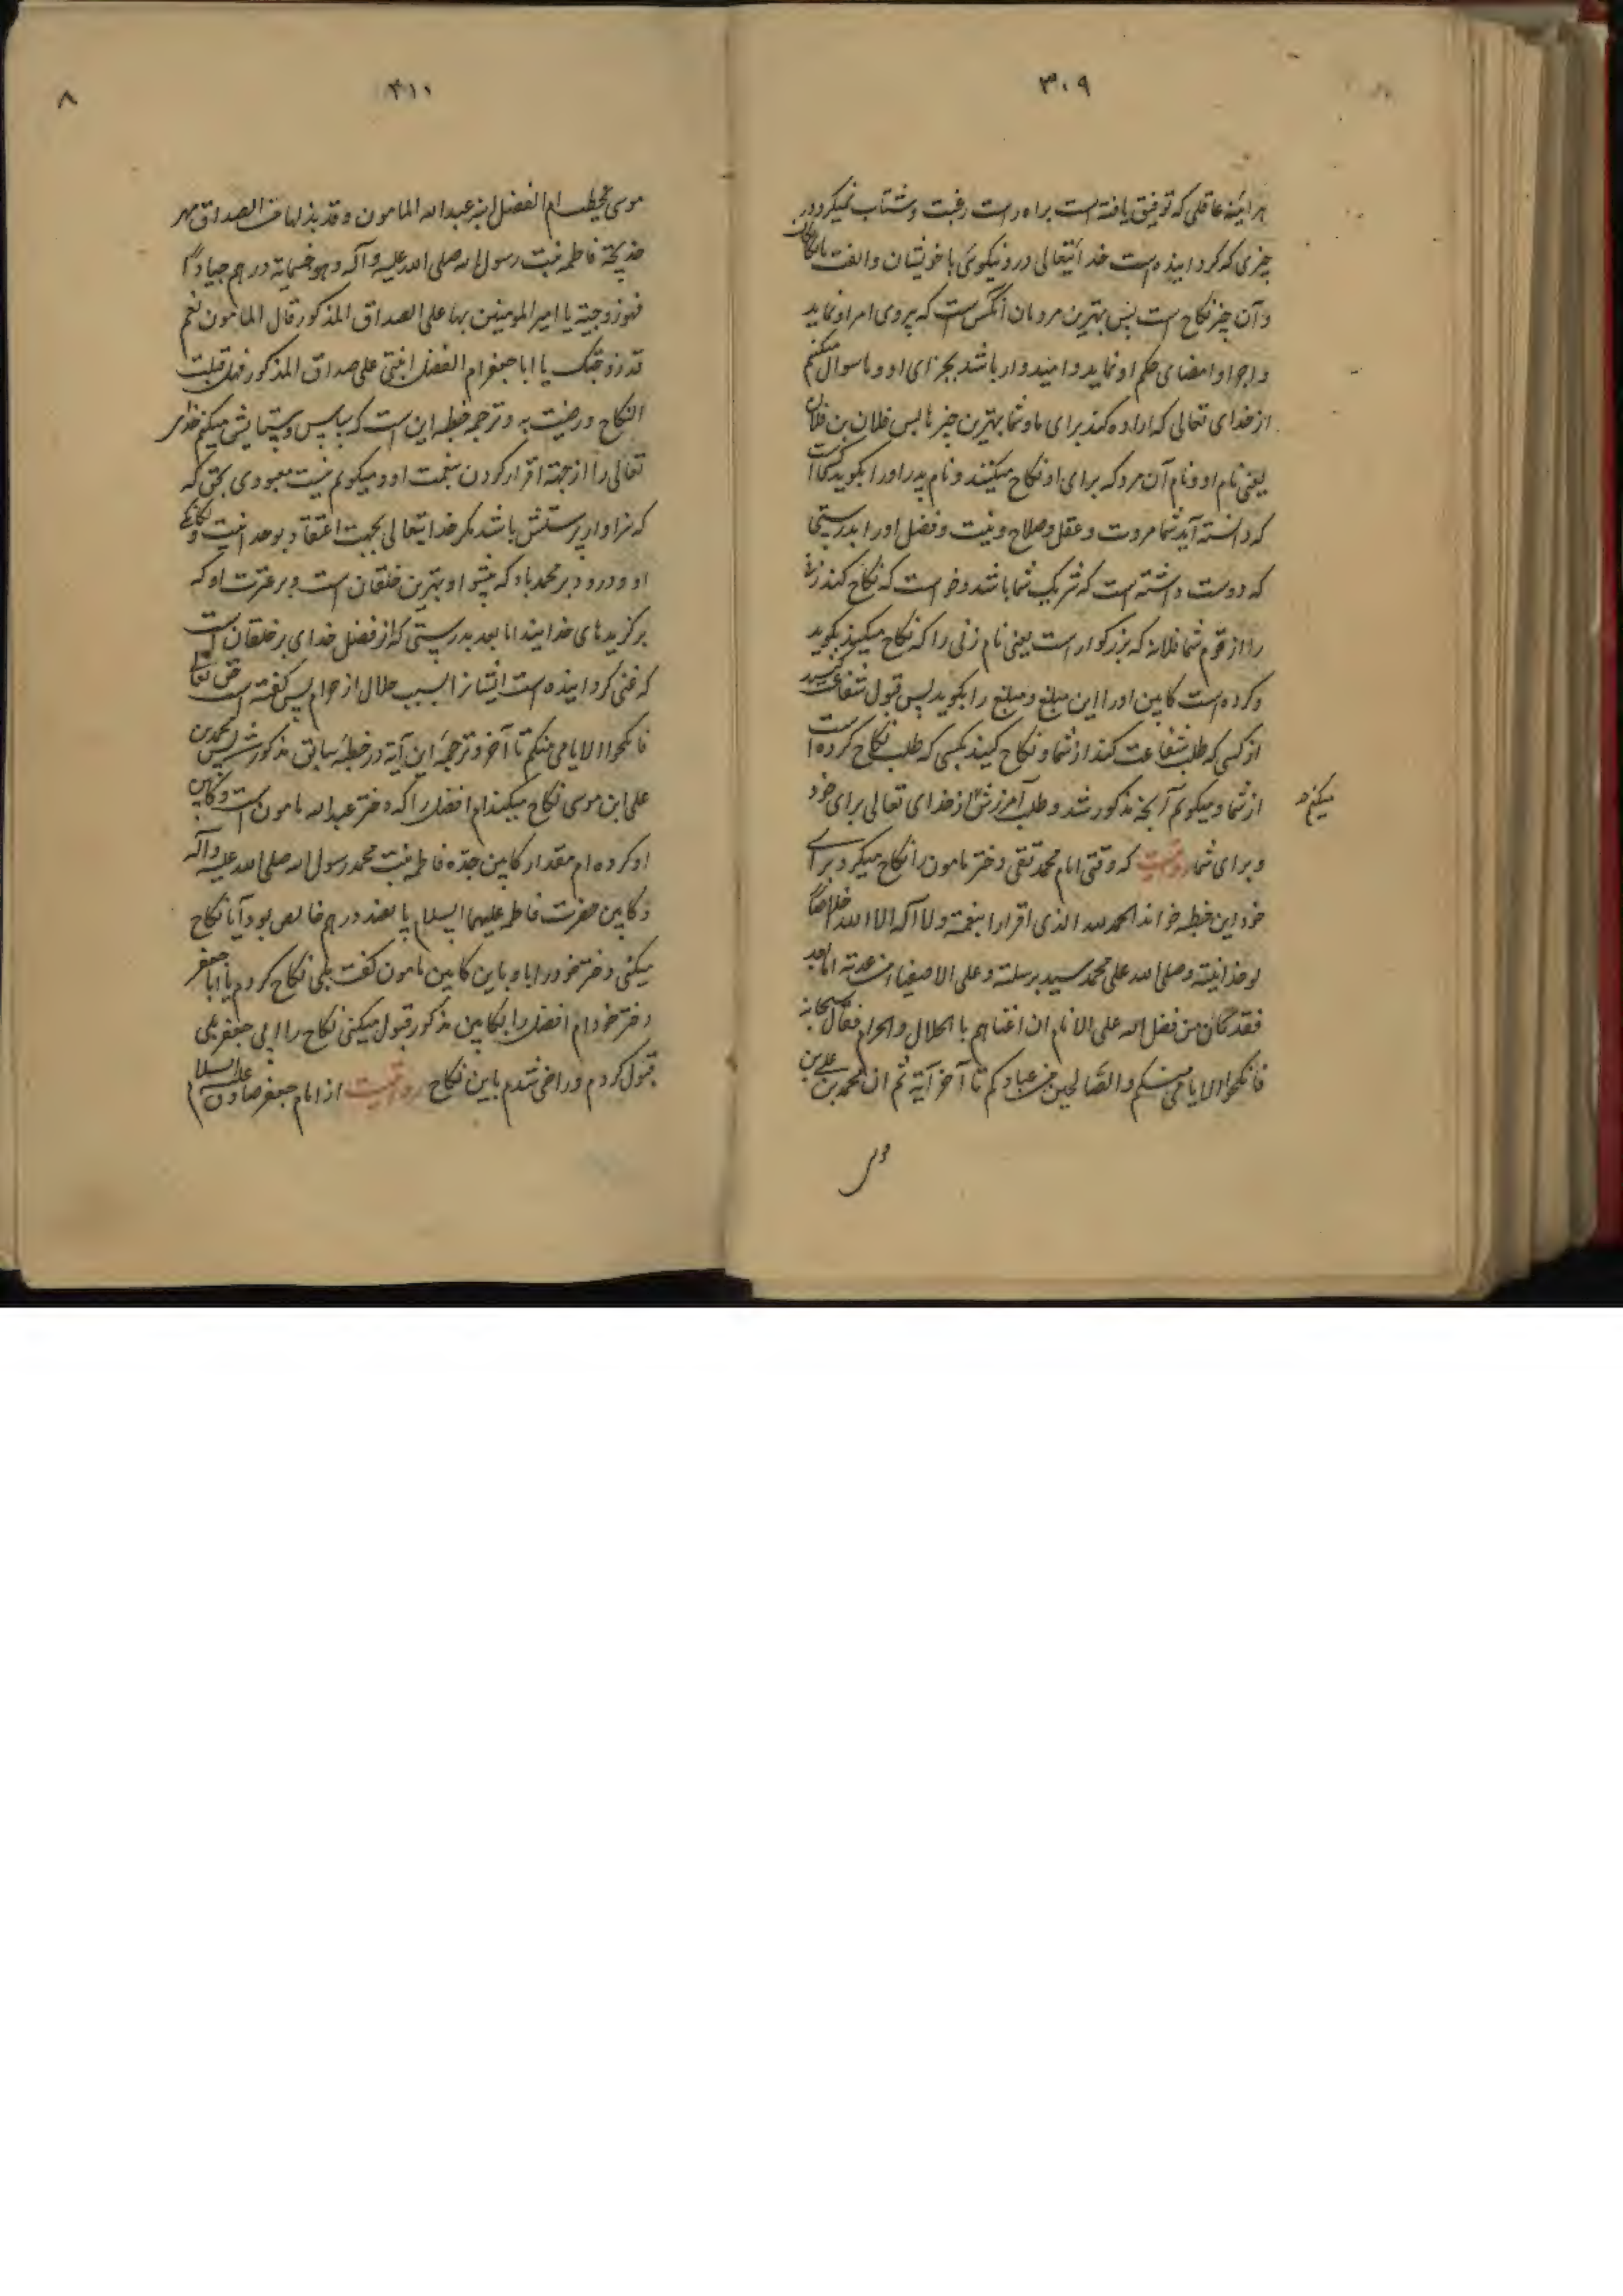 ۳۰۹
هر آینه عاقلی که توفیق یافته است براه راست رغبت و شتاب نمیکرد در
چیزی که گردانیده است خدایتعالی درو نیکوئی با خویشان و الفت با بیگانگان
و آن چیز نکاح است پس بهترین مردمان آنکس است که پیروی امر او نماید
و اجرا و امضای حکم او نماید و امیدوار باشد بجزای او و ما سوال میکنم
از خدای تعالی که اراده کند برای ما و شما بهترین چیزها پس فلان بن فلان
یعنی نام او و نام آن مرد که برای او نکاح میکنند و نام پدر او را بگوید کسی است
که دانسته آید شما مروت و عقل و صلاح و نیت و فضل او را بدرستی
که دوست داشته است که شریک شما باشد و خواست که نکاح کند زنی
را از قوم شما فلانه که بزرگوار است یعنی نام زنی را که نکاح میکنند بگوید
و کرده است کابین او را این مبلغ و مبلغ را بگوید پس قبول شفاعت کنید
از کسی که طلب شفاعت کند از شما و نکاح کنید بکسی که طلب نکاح کرده است
از شما و میگویم آنچه مذکور شد و طلب آمرزش از خدای تعالی برای خود
میکنم
و برای شما روایتست که وقتی امام محمد تقی دختر مامون را نکاح میکرد برای
خود این خطبه خواند الحمد لله الذی اقرارا بنعمته و لا اله الا الله اخلاصا
لوحدانیته و صلی الله علی محمد سید برسلته و علی الاصفیاء من عترته اما بعد
فقد کان من فضل الله علی الانام ان اغناهم با الحلال والحرام فقال سبحانه
فانکحوا الایامی منکم والصالحین من عبادکم تا آخر آیة ثم ان محمد بن علی بن
موسی
۳۱۰
۸
موسی یخطب ام الفضل ابنة عبدالله المامون و قد بذل لها من الصداق مهر
خدیجة فاطمه بنت رسول الله صلی الله علیه و آله و هو خمسمایة درهم جیادا
فهو زوجته یا امیر المومنین بها علی الصداق المذکور قال المامون نعم
قد زوجتک یا ابا جعفر ام الفضل ابنتی علی صداق المذکور فهل قبلت
النکاح و رضیت به و ترجمه خطبه این است که سپاس و ستایش میکنم خدای
تعالی را از جهة اقرار کردن بنعمت او و میگویم نیست معبودی بحق که
که سزاوار پرستش باشد مگر خدایتعالی بجهت اعتقاد بوحدانیت و یگانگی
او و درود بر محمد باد که پیشوا و بهترین خلقان است و بر عترت او که
برگزیدهای خدایند اما بعد بدرستی که از فضل خدای بر خلقان است
که غنی گردانیده است ایشانرا بسبب حلال از حرام پس گفته است حق تعالی
فانکحوا الایامی منکم تا آخر و ترجمهٔ این آیة در خطبهٔ سابق مذکور شد پس محمد بن
علی ابن موسی نکاح میکند ام افضل را که دختر عبدالله مامون است و کابین
او کرده ام مقدار کابین جدّه فاطمه بنت محمد رسول الله صلی الله علیه و آله
و کابین حضرت فاطمه علیهما السلام پانصد درهم خالص بود آیا نکاح
میکنی دختر خود را باو باین کابین مامون گفت بلی نکاح کردم یا ابا جعفر
دختر خود ام افضل را بکابین مذکور قبول میکنی نکاح را ابی جعفر بلی
قبول کردم و راضی شدم باین نکاح روایتست از امام جعفر صادق علیه السلام